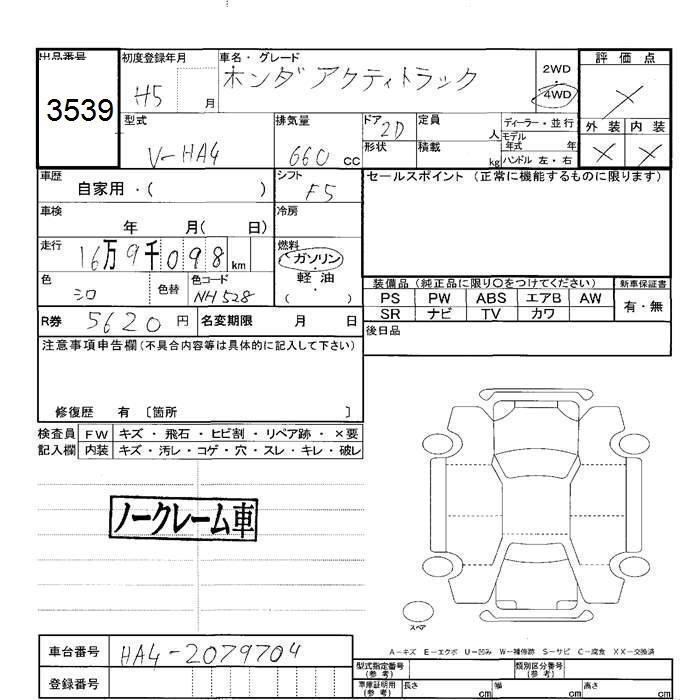 出品番号 初度登録年月 車名・グレード 評価点
3539 H5 月 ホンダ アクティトラック 2WD ・ 4WD ×
型式 排気量 ドア 2D 定員 人 ディーラー・並行 外装 内装
V-HA4 660 cc 形状 積載 kg モデル年式 年 × ×
ハンドル 左・右
車歴 自家用・( ) シフト F5 セールスポイント (正常に機能するものに限ります)
車検 年 月( 日) 冷房
走行 16万9千098 km 燃料 ガソリン
軽油
( )
色 シロ 色替 色コード NH528
装備品 (純正品に限り○をつけてください) 新車保証書
PS PW ABS エアB AW 有・無
SR ナビ TV カワ
R券 5620 円 名変期限 月 日 後日品
注意事項申告欄 (不具合内容等は具体的に記入して下さい)
修復歴 有 〔箇所 〕
検査員 FW キズ・飛石・ヒビ割・リペア跡・×要
記入欄 内装 キズ・汚レ・コゲ・穴・スレ・キレ・破レ
ノークレーム車
スペア
A−キズ E−エクボ U−凹み W−補修跡 S−サビ C−腐食 XX−交換済
車台番号 HA4-2079704
登録番号
型式指定番号 (参考) 類別区分番号 (参考)
車庫証明用 (参考) 長さ cm 幅 cm 高さ cm